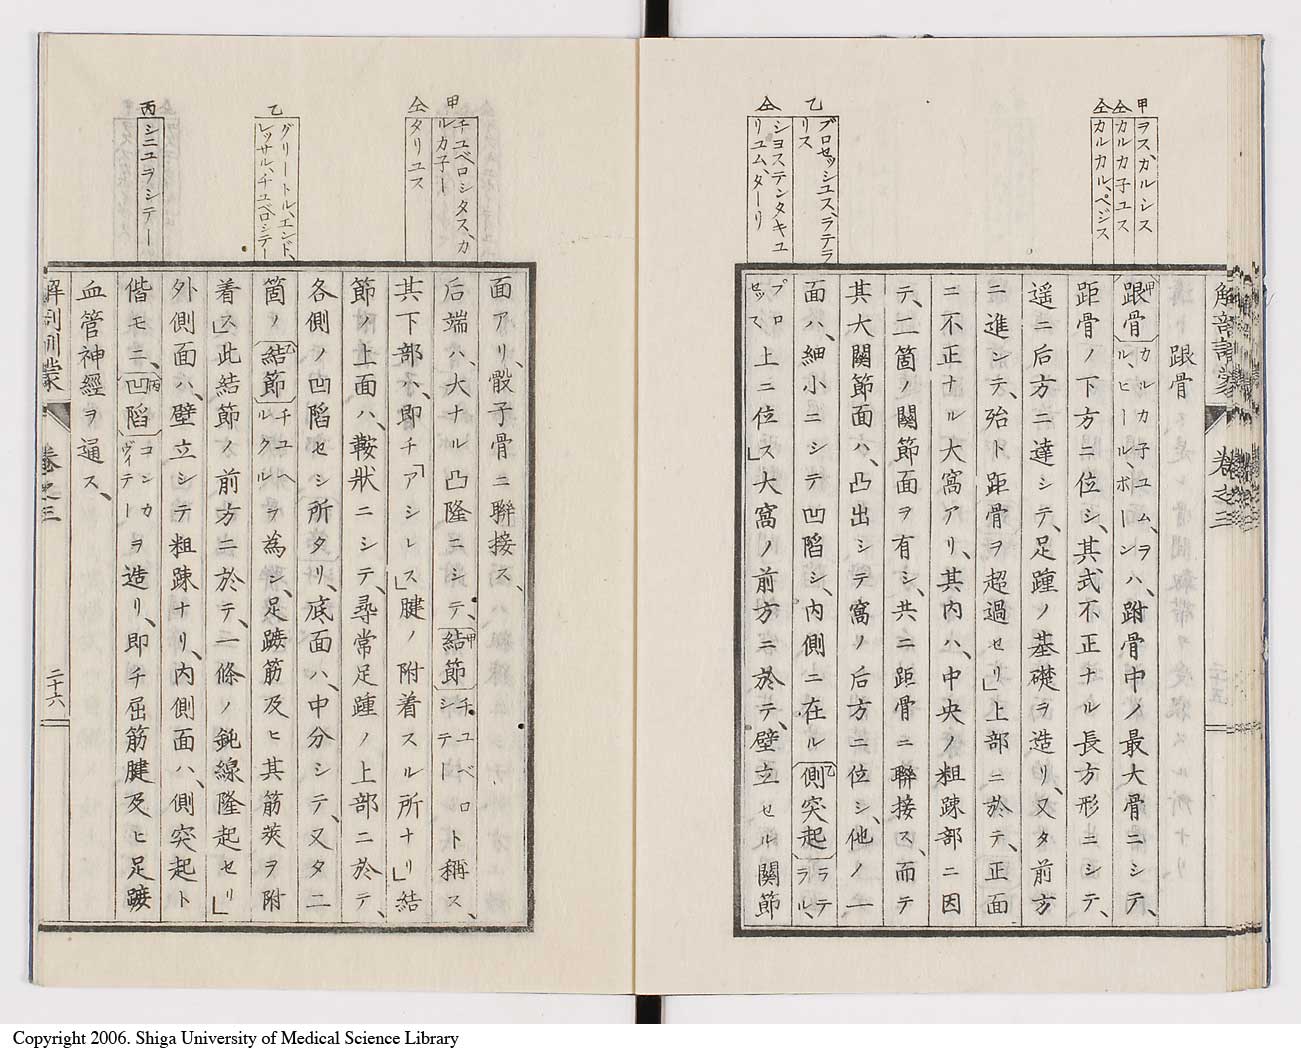 甲
仝
仝
ヲスカルシス
カルカ子ユス
カルカル、ペジス
乙
仝
プロセッシユス、ラテラ
リス
シヨステンタキユ
リユム、ターリ
解剖訓蒙 卷之三
跟骨
跟骨 甲 カルカ子ユム、ヲ
ル、ヒール、ボーン ハ、跗骨中ノ最大骨ニシテ、
距骨ノ下方ニ位シ、其式不正ナル長方形ニシテ、
遥ニ后方ニ達シテ、足踵ノ基礎ヲ造リ、又タ前方
ニ進シテ、殆ト距骨ヲ超過セリ」上部ニ於テ、正面
ニ不正ナル大窩アリ、其内ハ、中央ノ粗踈部ニ因
テ、二箇ノ關節面ヲ有シ、共ニ距骨ニ聯接ス、而テ
其大關節面ハ、凸出シテ窩ノ后方ニ位シ、他ノ一
面ハ、細小ニシテ凹陷シ、内側ニ在ル側突起 乙 ラテ
ラル、
プロ
セッス 上ニ位ス」大窩ノ前方ニ於テ、壁立セル關節
甲
仝
チユベロシタス、カ
ルカ子ー
タリユス
乙
グリートル、エンド、
レッサル、チユベロシテー
丙
シニユヲシテー
面アリ、骰子骨ニ聯接ス、
后端ハ、大ナル凸隆ニシテ、結節 甲 チユベロ
シテー ト稱ス、
其下部ハ、即チ「アシレス」腱ノ附着スル所ナリ」結
節ノ上面ハ、鞍狀ニシテ、尋常足踵ノ上部ニ於テ、
各側ノ凹陷セシ所タリ、底面ハ、中分シテ、又タ二
箇ノ結節 乙 チユヘ
ルクル ヲ為シ、足蹠筋及ヒ其筋莢ヲ附
着ス」此結節ノ前方ニ於テ、一條ノ鈍線隆起セリ」
外側面ハ、壁立シテ粗踈ナリ、内側面ハ、側突起ト
偕モニ、凹陷 丙 コンカ
ヴィテー ヲ造リ、即チ屈筋腱及ヒ足蹠
血管神經ヲ通ス、
解剖訓蒙 卷之三 二十六
Copyright 2006. Shiga University of Medical Science Library